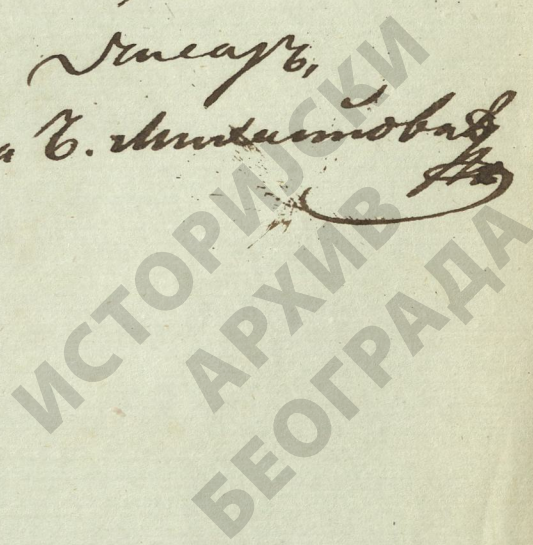 Писаръ,
а Ђ. Михаиловић
ИСТОРИЈСКИ
АРХИВ
БЕОГРАДА